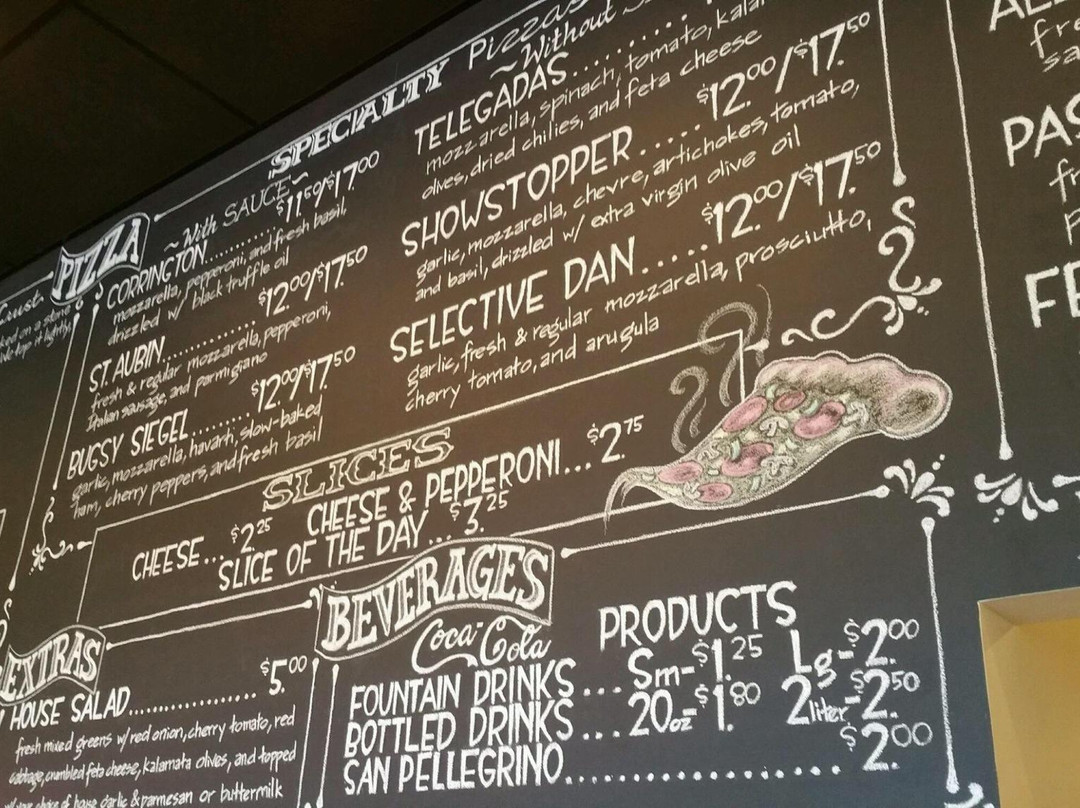 Crust
PIZZA
SPECIALTY Pizzas
~With SAUCE~
CORRINGTON.......... $11.50/$17.00
mozzarella, pepperoni, and fresh basil,
drizzled w/ black truffle oil
ST. AUBIN............ $12.00/$17.50
fresh & regular mozzarella, pepperoni,
Italian sausage, and parmigiano
BUGSY SIEGEL........ $12.00/$17.50
garlic, mozzarella, havarti, slow-baked
ham, cherry peppers, and fresh basil
~Without
TELEGADAS..........
mozzarella, spinach, tomato,
olives, dried chilies, and feta cheese
SHOWSTOPPER..... $12.00/$17.50
garlic, mozzarella, chevre, artichokes, tomato,
and basil, drizzled w/ extra virgin olive oil
SELECTIVE DAN..... $12.00/$17.50
garlic, fresh & regular mozzarella, prosciutto,
cherry tomato, and arugula
SLICES
CHEESE... $2.25 CHEESE & PEPPERONI... $2.75
SLICE OF THE DAY... $3.25
EXTRAS
HOUSE SALAD.................. $5.00
fresh mixed greens w/ red onion, cherry tomato, red
cabbage, crumbled feta cheese, kalamata olives, and topped
w/ your choice of house garlic & parmesan or buttermilk
BEVERAGES
Coca-Cola PRODUCTS
FOUNTAIN DRINKS... Sm-$1.25 Lg-$2.00
BOTTLED DRINKS... 20oz-$1.80 2liter-$2.50
SAN PELLEGRINO.................. $2.00